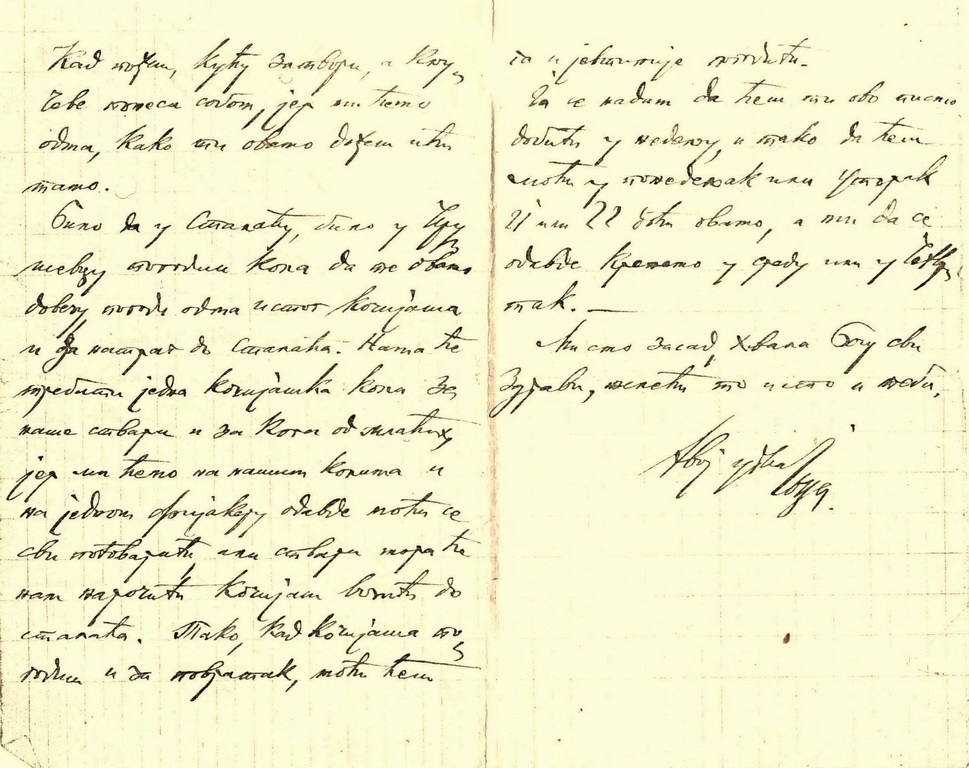 Кад пођеш, кућу затвори, а кљу-
чеве понеси собом, јер ми ћемо
одма, како ти овамо дођеш ићи
тамо.
Било да у Сталаћу, било у Кру-
шевцу погодиш кола да те овамо
довезу, погоди одма истог кочијаша
и за натраг до Сталаћа. Нама ће
требати једна кочијашка кола за
наше ствари и за кога од млађих,
јер ми ћемо на нашим колима и
на једном фијакеру одавде моћи се
сви потоварити, али ствари мораће
нам нарочити кочијаш возити до
Сталаћа. Тако, кад кочијаша по-
годиш и за повратак, моћи ћеш
га и јевтиније погодити.
Ја се надам да ћеш ти ово писмо
добити у недељу, и тако да ћеш
моћи у понедељак или уторак
21 или 22 доћи овамо, а ми да се
одавде кренемо у среду или у четвр-
так. —
Ми смо засад, хвала Богу сви
здрави, желећи то исто и теби,
твој